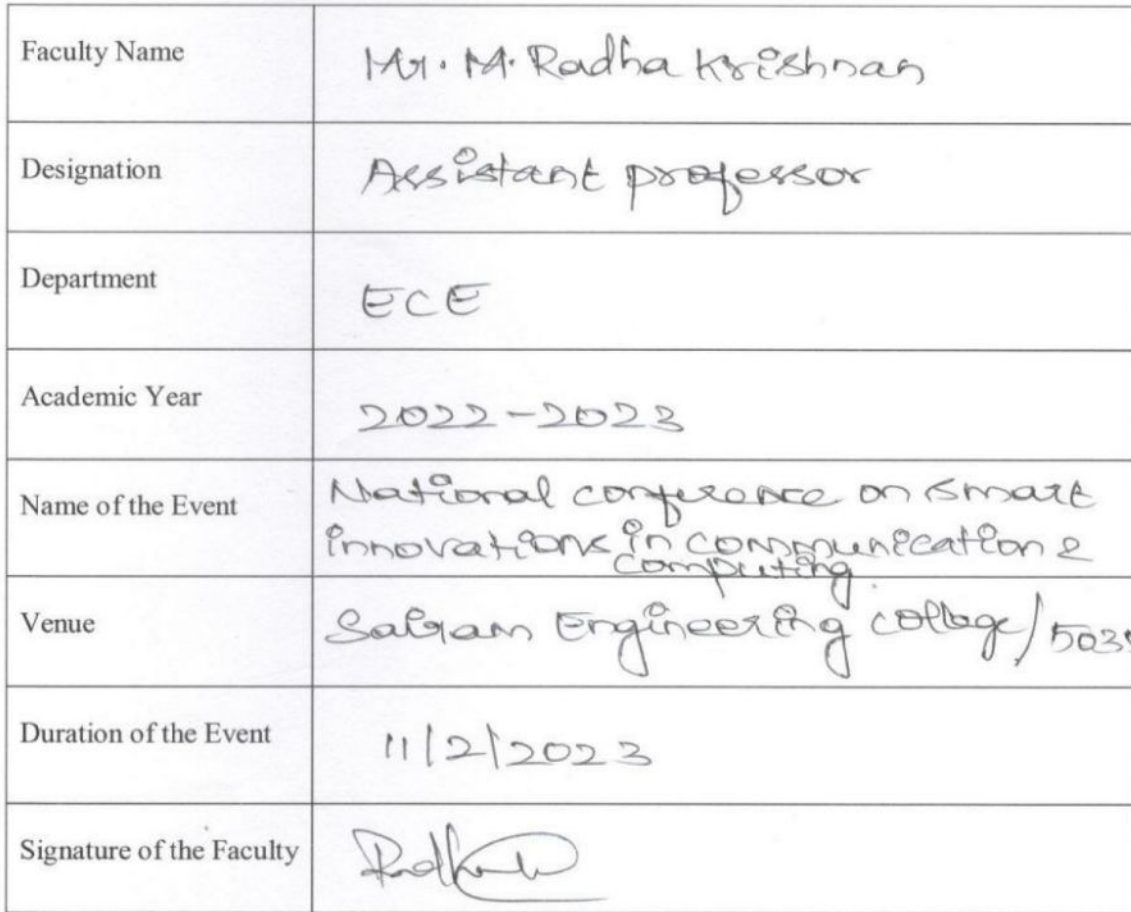 Faculty Name Mr. M. Radha Krishnan
Designation Assistant professor
Department ECE
Academic Year 2022-2023
Name of the Event National conference on smart
innovations in communication &
computing
Venue Sairam Engineering college/
Duration of the Event 11/2/2023
Signature of the Faculty